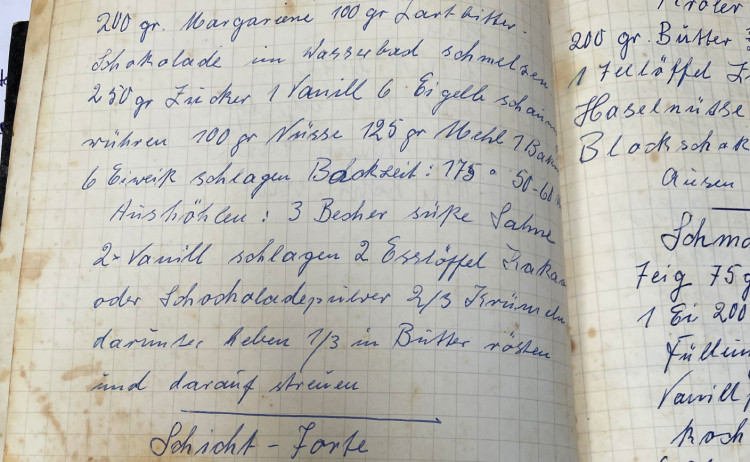 200 gr. Margariene 100 gr Zartbitter-
Schokolade im Wasserbad schmelzen
250 gr Zucker 1 Vanill 6 Eigelb schaum
rühren 100 gr Nüsse 125 gr Mehl 1 Back
6 Eiweiß schlagen Backzeit: 175° 50-60
Aushöhlen: 3 Becher süße Sahne
2 Vanill schlagen 2 Esslöffel Kakao
oder Schocholadepulver 2/3 Krümeln
darunter heben 1/3 in Butter rösten
und darauf streuen
Schicht-Torte
200 gr. Butter
1 Teelöffel
Haselnüsse
Blockschok
Teig 75 g
1 Ei 200
Vanill
Koch